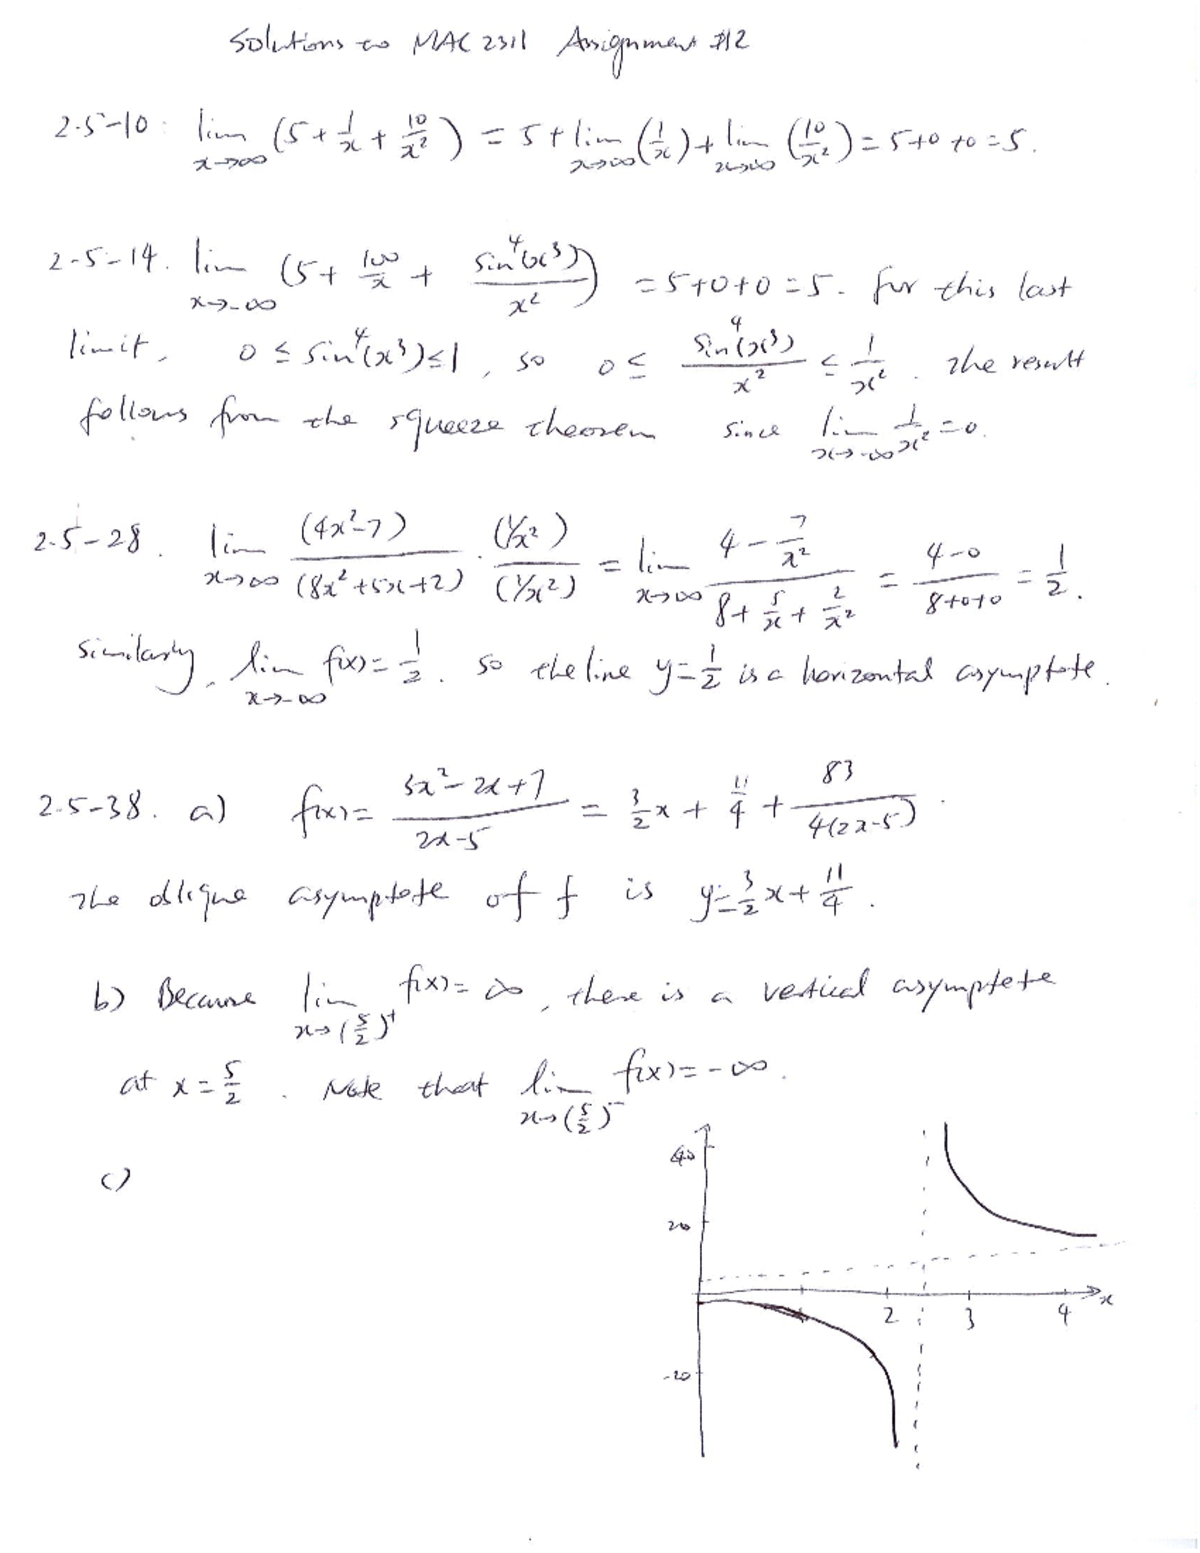 Solutions to MAC 2311 Assignment #12
2.5-10: lim x→∞ (5 + 1/x + 10/x²) = 5 + lim x→∞ (1/x) + lim x→∞ (10/x²) = 5+0+0 = 5.
2-5-14. lim x→-∞ (5 + 100/x + sin⁴(x³)/x²) = 5+0+0 = 5. for this last
limit, 0 ≤ sin⁴(x³) ≤ 1, so 0 ≤ sin⁴(x³)/x² ≤ 1/x². The result
follows from the squeeze theorem since lim x→-∞ 1/x² = 0.
2.5-28. lim x→∞ (4x²-7)/(8x²+5x+2) · (1/x²)/(1/x²) = lim x→∞ (4 - 7/x²)/(8 + 5/x + 2/x²) = (4-0)/(8+0+0) = 1/2.
Similarly, lim x→-∞ f(x) = 1/2. so the line y = 1/2 is a horizontal asymptote.
2.5-38. a) f(x) = (3x²-2x+7)/(2x-5) = 3/2 x + 11/4 + 83/(4(2x-5)).
The oblique asymptote of f is y = 3/2 x + 11/4.
b) Because lim x→(5/2)⁺ f(x) = ∞, there is a vertical asymptote
at x = 5/2. Note that lim x→(5/2)⁻ f(x) = -∞.
c)
40
20
x
2 3 4
-20